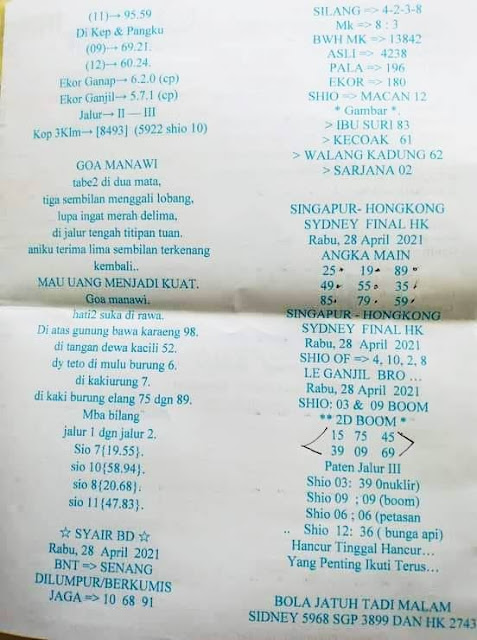 (11)→ 95.59
Di Kep & Pangku
(09)→ 69.21.
(12)→ 60.24.
Ekor Ganap→ 6.2.0 (cp)
Ekor Ganjil→ 5.7.1 (cp)
Jalur→ II — III
Kop 3Klm→ [8493] (5922 shio 10)
GOA MANAWI
tabe2 di dua mata,
tiga sembilan menggali lobang,
lupa ingat merah delima,
di jalur tengah titipan tuan.
aniku terima lima sembilan terkenang
kembali..
MAU UANG MENJADI KUAT.
Goa manawi.
hati2 suka di rawa.
Di atas gunung bawa karaeng 98.
di tangan dewa kacili 52.
dy teto di mulu burung 6.
di kakiurung 7.
di kaki burung elang 75 dgn 89.
Mba bilang
jalur 1 dgn jalur 2.
Sio 7{19.55}.
sio 10{58.94}.
sio 8{20.68}.
sio 11{47.83}.
☆ SYAIR BD ☆
Rabu, 28 April 2021
BNT => SENANG
DILUMPUR/BERKUMIS
JAGA => 10 68 91
SILANG => 4-2-3-8
Mk => 8 : 3
BWH MK => 13842
ASLI => 4238
PALA => 196
EKOR => 180
SHIO => MACAN 12
* Gambar *.
> IBU SURI 83
> KECOAK 61
> WALANG KADUNG 62
> SARJANA 02
SINGAPUR- HONGKONG
SYDNEY FINAL HK
Rabu, 28 April 2021
ANGKA MAIN
25* 19* 89*
49* 55* 35*
85* 79* 59*
SINGAPUR - HONGKONG
SYDNEY FINAL HK
Rabu, 28 April 2021
SHIO OF => 4, 10, 2, 8
LE GANJIL BRO ...
Rabu, 28 April 2021
SHIO: 03 & 09 BOOM
** 2D BOOM *
15 75 45
39 09 69
Paten Jalur III
Shio 03: 39 0nuklir)
Shio 09 ; 09 (boom)
Shio 06 ; 06 (petasan
.. Shio 12: 36 ( bunga api)
Hancur Tinggal Hancur...
Yang Penting Ikuti Terus...
BOLA JATUH TADI MALAM
SIDNEY 5968 SGP 3899 DAN HK 2743